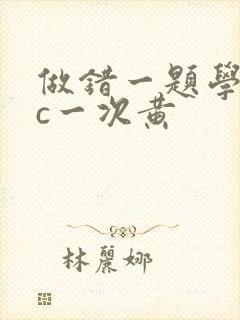 做錯一題學
c一次黃
林麗娜